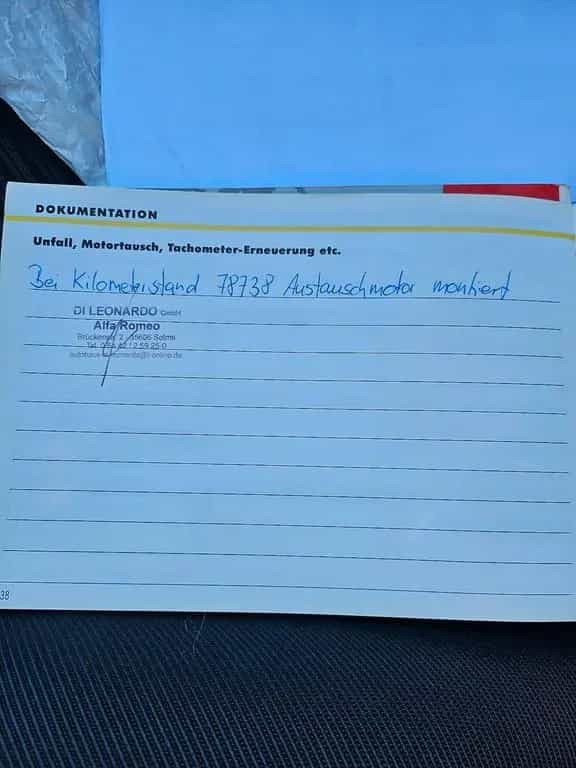 DOKUMENTATION
Unfall, Motortausch, Tachometer-Erneuerung etc.
Bei Kilometerstand 78738 Austauschmotor montiert
DI LEONARDO GmbH
Alfa Romeo
35606 Solms
Tel.
38